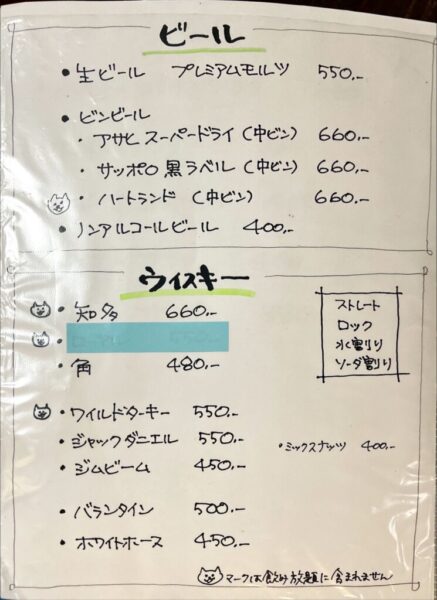 ビール
・生ビール プレミアムモルツ 550.-
・ビンビール
・アサヒ スーパードライ (中ビン) 660.-
・サッポロ 黒ラベル (中ビン) 660.-
・ハートランド (中ビン) 660.-
・ノンアルコールビール 400.-
ウイスキー
・知多 660.-
・角 480.-
・ワイルドターキー 550.-
・ジャックダニエル 550.-
・ジムビーム 450.-
・バランタイン 500.-
・ホワイトホース 450.-
ストレート
ロック
水割り
ソーダ割り
・ミックスナッツ 400.-
マークは飲み放題に含まれません